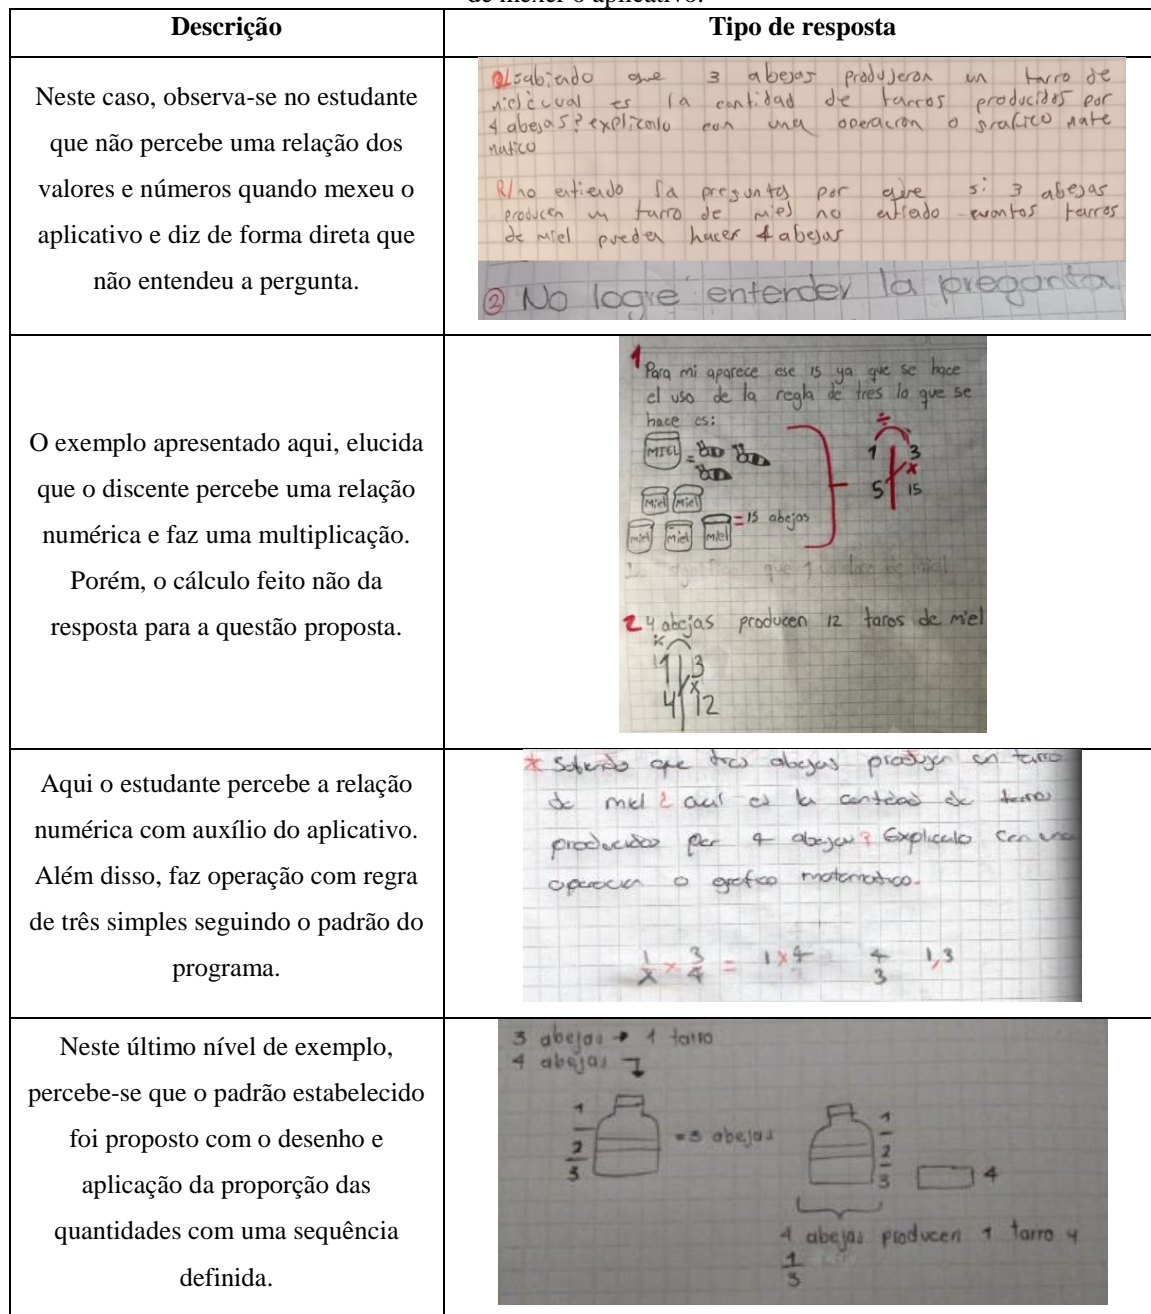 de mexer o aplicativo.
Descrição
Tipo de resposta
Neste caso, observa-se no estudante
que não percebe uma relação dos
valores e números quando mexeu o
aplicativo e diz de forma direta que
não entendeu a pergunta.
sabiendo que 3 abejas produjeron un tarro de
miel ¿cual es la cantidad de tarros producidos por
4 abejas? explicalo con una operacion o grafico mate
matico
R/ no entiendo la pregunta por que si 3 abejas
producen un tarro de miel no entiendo cuantos tarros
de miel pueden hacer 4 abejas
2 No logre entender la pregunta
O exemplo apresentado aqui, elucida
que o discente percebe uma relação
numérica e faz uma multiplicação.
Porém, o cálculo feito não da
resposta para a questão proposta.
1 Para mi aparece ese 15 ya que se hace
el uso de la regla de tres lo que se
hace es:
MIEL =
÷
1 3
x
5 15
Miel Miel
miel miel miel = 15 abejas
2 4 abejas producen 12 taros de miel
1 3
x
4 12
Aqui o estudante percebe a relação
numérica com auxílio do aplicativo.
Além disso, faz operação com regra
de três simples seguindo o padrão do
programa.
que tres abejas un tarro
de miel ¿ es la de
por 4 abejas? Explicalo con una
o grafico matematico.
1/x × 3/4 = 1×4 4/3 1,3
Neste último nível de exemplo,
percebe-se que o padrão estabelecido
foi proposto com o desenho e
aplicação da proporção das
quantidades com uma sequência
definida.
3 abejas → 1 tarro
4 abejas
1
2
3
= 3 abejas
1
2
3
4
4 abejas producen 1 tarro y
1
3